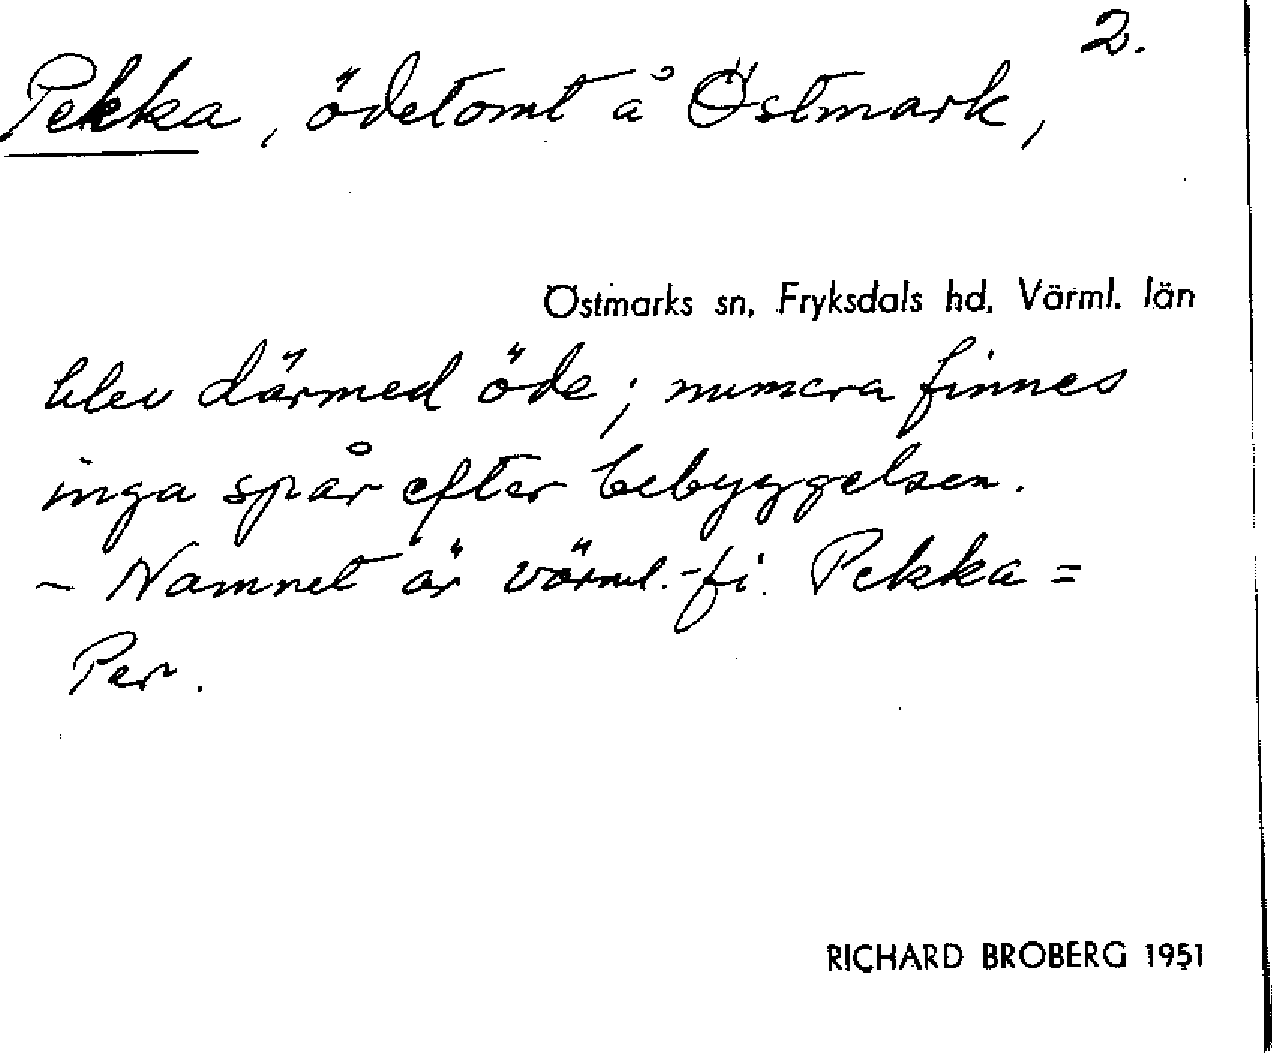 2.
Pekka, ödetomt å Östmark,
Östmarks sn, Fryksdals hd, Värml. län
blev därmed öde; numera finnes
inga spår efter bebyggelsen.
- Namnet är värml.-fi. Pekka =
Per.
RICHARD BROBERG 1951